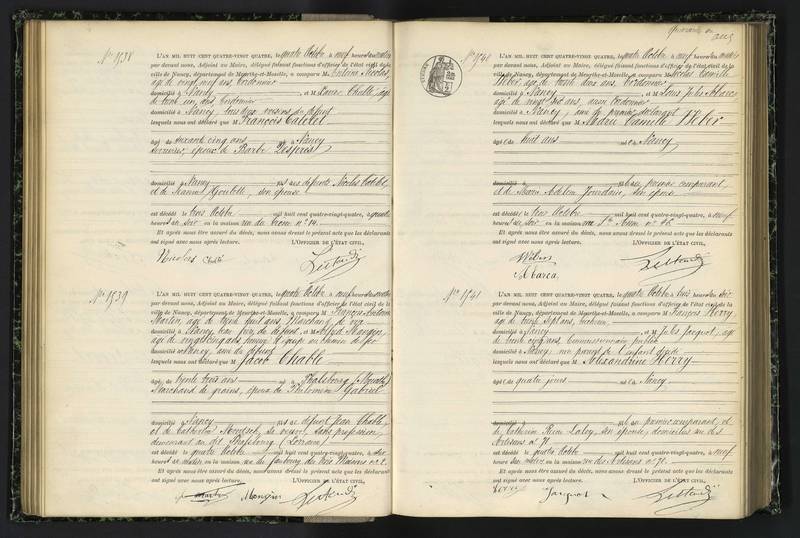 N° 1538
L'AN MIL HUIT CENT QUATRE-VINGT QUATRE, le quatre Octobre à neuf heures du matin
par devant nous, Adjoint au Maire, délégué faisant fonctions d'officier de l'état civil de la
ville de Nancy, département de Meurthe-et-Moselle, a comparu M Antoine Nicolas,
âgé de vingt neuf ans, Cordonnier
domicilié à Nancy, et M Louis Chatté, âgé
de trente un ans Cordonnier
domicilié à Nancy, tous deux voisins du défunt
lesquels nous ont déclaré que M François Calolet
âgé de soixante cinq ans né à Nancy
Serrurier, époux de Barbe
domicilié à Nancy fils des défunts Nicolas
et de Jeanne, son épouse
est décédé le trois Octobre mil huit cent quatre-vingt-quatre, à quatre
heures du soir en la maison rue du n° 14.
Et après nous être assuré du décès, nous avons dressé le présent acte que les déclarants
ont signé avec nous après lecture. L'OFFICIER DE L'ÉTAT CIVIL,
Nicolas Chatté
N° 1539
L'AN MIL HUIT CENT QUATRE-VINGT QUATRE, le quatre Octobre à neuf heures du matin
par devant nous, Adjoint au Maire, délégué faisant fonctions d'officier de l'état civil de la
ville de Nancy, département de Meurthe-et-Moselle, a comparu M François Antoine
Martin, âgé de trente huit ans, Marchand de vin
domicilié à Nancy du défunt, et M Alfred Mougin,
âgé de vingt cinq ans, homme d'équipe au chemin de fer
domicilié à Nancy, ami du défunt
lesquels nous ont déclaré que M Jacob Chable
âgé de trente trois ans né à Phalsbourg
Marchand de grains, époux de Philomène Gabriel
domicilié à Nancy fils de défunt Jean Chable,
et de Catherine, sa veuve, sans profession,
demeurant au dit Phalsbourg (Lorraine)
est décédé le quatre Octobre mil huit cent quatre-vingt-quatre, à
heures du matin en la maison rue du faubourg des trois Maisons n° 2.
Et après nous être assuré du décès, nous avons dressé le présent acte que les déclarants
ont signé avec nous après lecture. L'OFFICIER DE L'ÉTAT CIVIL,
Martin Mougin
N° 1540
L'AN MIL HUIT CENT QUATRE-VINGT QUATRE, le quatre Octobre à neuf heures du matin
par devant nous, Adjoint au Maire, délégué faisant fonctions d'officier de l'état civil de la
ville de Nancy, département de Meurthe-et-Moselle, a comparu M Nicolas Camille
Wéber, âgé de trente deux ans, Cordonnier
domicilié à Nancy, et M Louis Jules Abarca
âgé de vingt sept ans, aussi Cordonnier
domicilié à Nancy, ami du premier déclarant
lesquels nous ont déclaré que M Marie Camille Wéber
âgé de huit ans né à Nancy
domicilié à fils du premier comparant,
et de Marie Adeline Jourdain, son épouse
est décédé le trois Octobre mil huit cent quatre-vingt-quatre, à neuf
heures du soir en la maison rue Ste Anne n° 16.
Et après nous être assuré du décès, nous avons dressé le présent acte que les déclarants
ont signé avec nous après lecture. L'OFFICIER DE L'ÉTAT CIVIL,
Wéber
Abarca
N° 1541
L'AN MIL HUIT CENT QUATRE-VINGT QUATRE, le quatre Octobre à trois heures du soir
par devant nous, Adjoint au Maire, délégué faisant fonctions d'officier de l'état civil de la
ville de Nancy, département de Meurthe-et-Moselle, a comparu M François Herry
âgé de trente sept ans,
domicilié à Nancy, et M Jules Jacquot, âgé
de trente cinq ans, Commissionnaire public
domicilié à Nancy, non parent de l'enfant décédé
lesquels nous ont déclaré que M Alexandrine Herry
âgé de quatre jours né à Nancy
domicilié à fils du premier comparant, et
de Catherine Reine Laley, son épouse, domiciliés rue des
Artisans n° 71
est décédé le quatre Octobre mil huit cent quatre-vingt-quatre, à neuf
heures du matin en la maison rue des Artisans n° 71.
Et après nous être assuré du décès, nous avons dressé le présent acte que les déclarants
ont signé avec nous après lecture. L'OFFICIER DE L'ÉTAT CIVIL,
Herry Jacquot